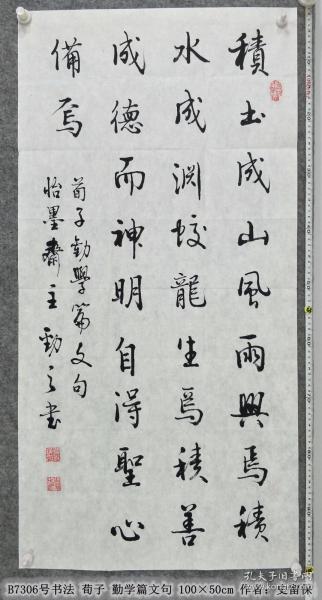 積土成山風雨興焉積
水成渊蛟龍生焉積善
成德而神明自得聖心
備焉
荀子勸學篇文句
怡墨齋主勁之書
B7306号书法 荀子 勤学篇文句 100×50cm 作者：史留保
孔夫子旧书网